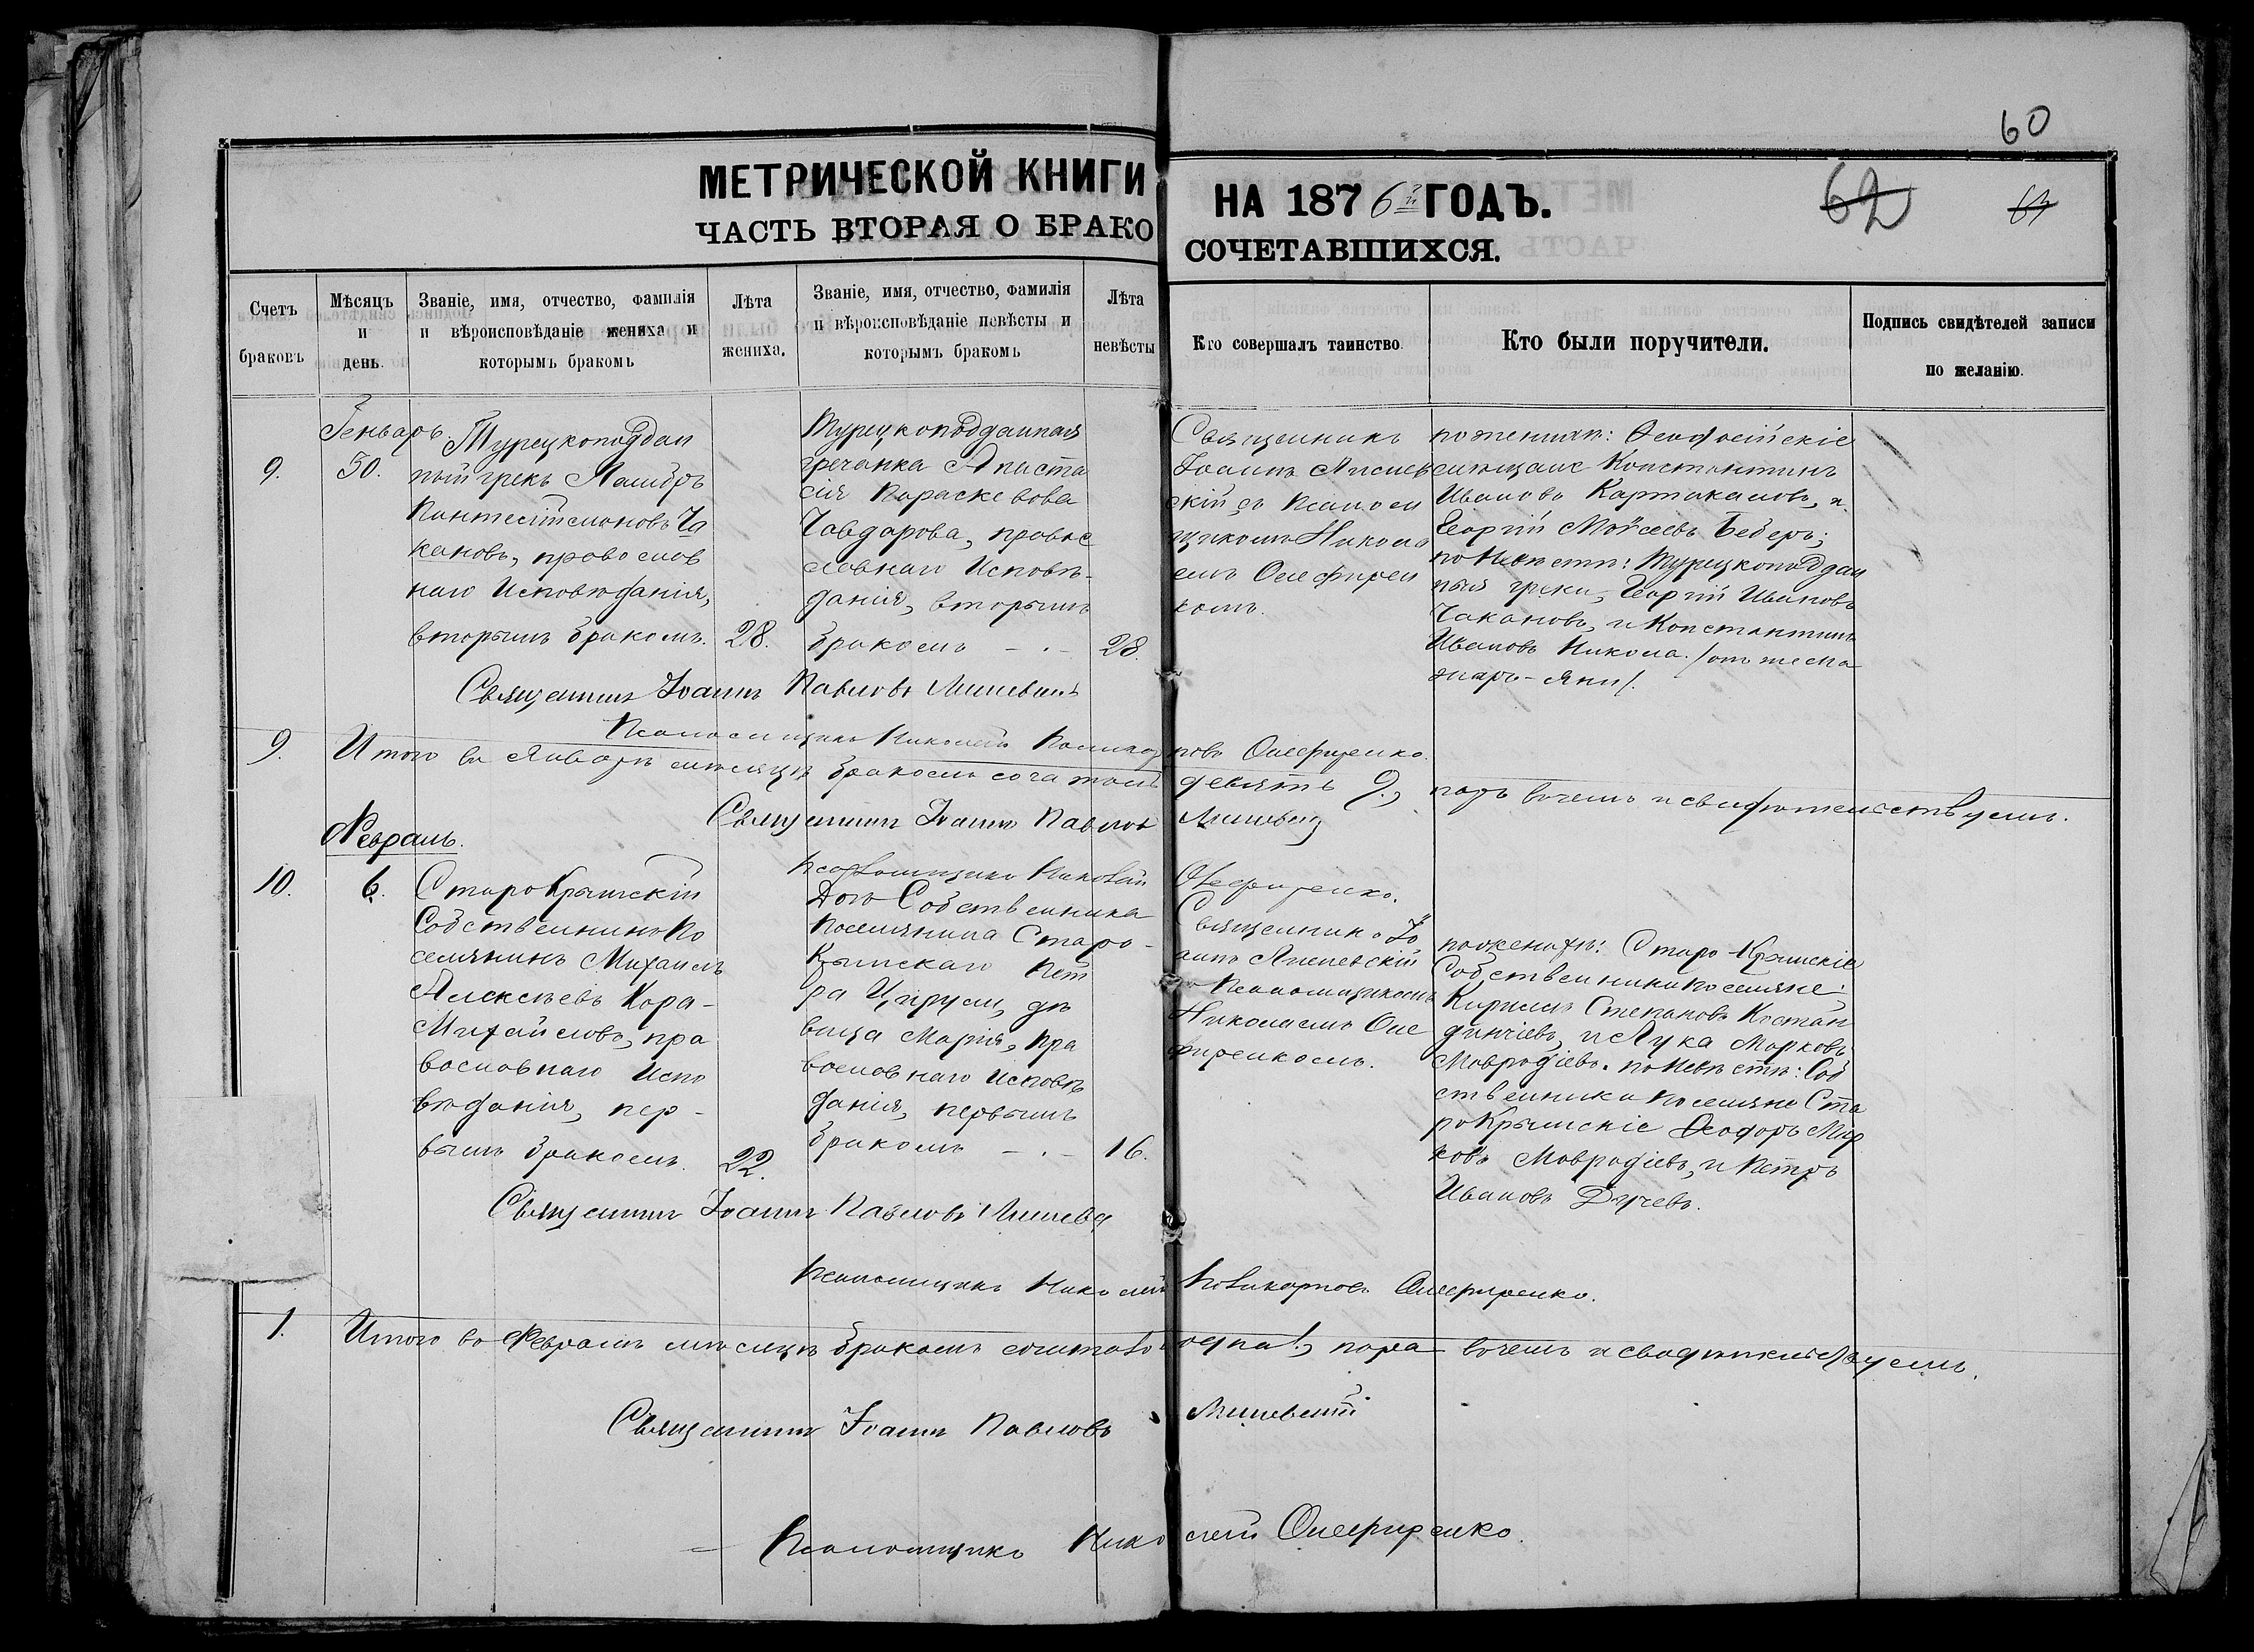 60
МЕТРИЧЕСКОЙ КНИГИ НА 1876й ГОДЪ.
62
ЧАСТЬ ВТОРАЯ О БРАКОСОЧЕТАВШИХСЯ.
Счетъ браковъ
Мѣсяцъ и день.
Званіе, имя, отчество, фамилія и вѣроисповѣданіе жениха и которымъ бракомъ
Лѣта жениха.
Званіе, имя, отчество, фамилія и вѣроисповѣданіе невѣсты и которымъ бракомъ
Лѣта невѣсты
Кто совершалъ таинство.
Кто были поручители.
Подпись свидѣтелей записи по желанію.
9.
Генварь
30.
Турецкоподдан
ный грекъ
Ча
кановъ, православ
наго Исповѣданія,
вторымъ бракомъ.
28.
Турецкоподданная
гречанка Анаста
сія Параскевова
Чавдарова, правос
лавнаго Исповѣ-
данія, вторымъ
бракомъ - . -
28.
Священникъ
Іоаннъ
скій съ Псалом
щикомъ Никола
емъ Олефирен
комъ.
по женихѣ: Ѳеодосійскіе
мѣщане Константинъ
Ивановъ и
Георгій Моѵсеевъ
по Невѣстѣ: Турецкоподдан
ныя греки, Георгій Ивановъ
Чакановъ, и Константинъ
Ивановъ Никола
Священникъ Іоаннъ Павловъ
Псаломщикъ Николай Поликарповъ Олефиренко.
9.
Итого въ Январѣ мѣсяцѣ бракомъ сочетались девять 9, паръ въ чемъ и свидѣтельствуемъ.
Священникъ Іоаннъ Павловъ
Псаломщикъ Николай Олефиренко.
Февраль.
10.
6.
СтароКрымскій
Собственникъ По
селянинъ Михаилъ
Алексѣевъ Кара-
Михайловъ, пра
вославнаго Испо
вѣданія, пер-
вымъ бракомъ.
22.
Дочь Собственника
Поселянина Старо-
Крымскаго Пет
ра дѣ
вица Марія, Пра
вославнаго Исповѣ
данія, первымъ
бракомъ - . -
16.
Священникъ Іо
аннъ
съ Псаломщикомъ
Николаемъ Оле
фиренкомъ.
по женихѣ: Старо-Крымскіе
Собственники поселяне:
Кириллъ Степановъ Костан
динчіевъ, и Лука Марковъ
Мавродіевъ. по Невѣстѣ: Соб
ственники поселяне Ста
роКрымскіе Ѳеодоръ Мар
ковъ Мавродіевъ, и Петръ
Ивановъ
Священникъ Іоаннъ Павловъ
Псаломщикъ Николай Поликарповъ Олефиренко.
1.
Итого въ Февралѣ мѣсяцѣ бракомъ сочеталось одна 1, пара въ чемъ и свидѣтельствуемъ.
Священникъ Іоаннъ Павловъ
Псаломщикъ Николай Олефиренко.